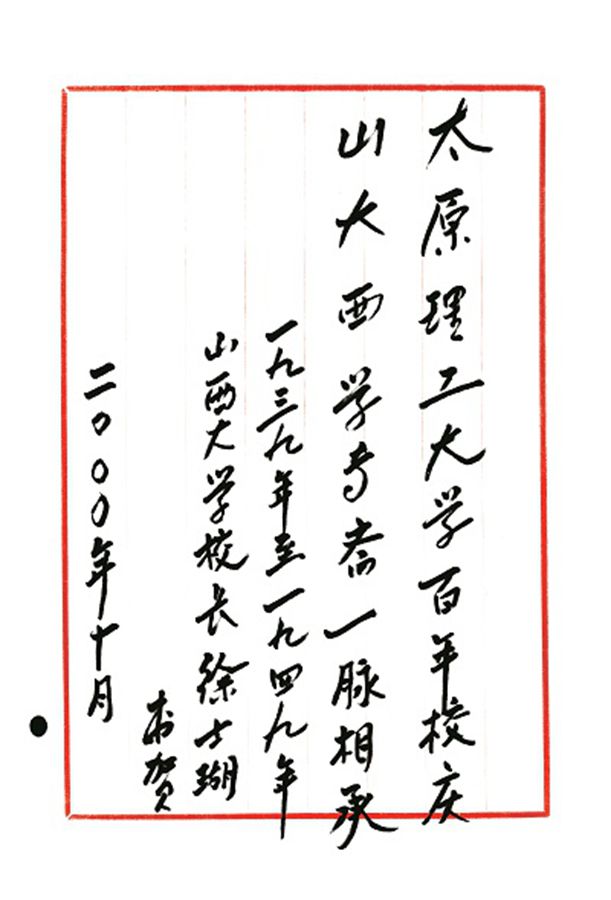 太原理工大学百年校庆
山大西学专斋一脉相承
一九三九年至一九四九年
山西大学校长徐士瑚
贺
二〇〇〇年十月